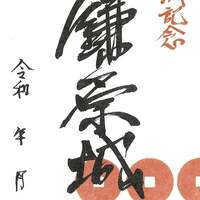 記念
鎌原城
令和 年 月